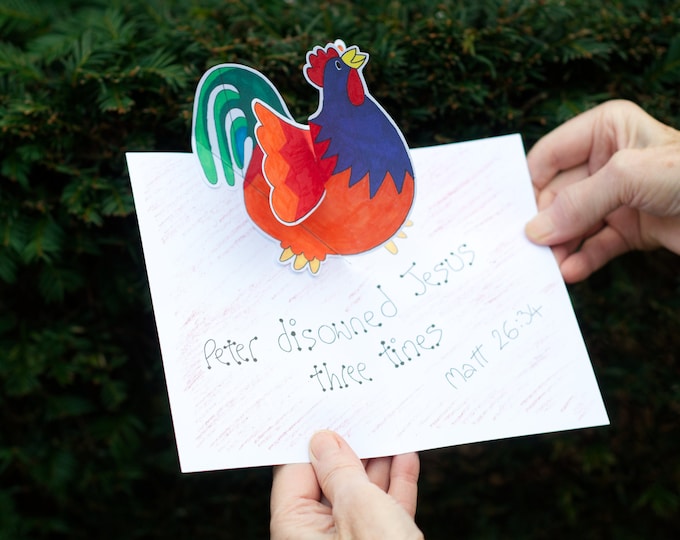 Peter disowned Jesus
three times
Matt 26:34